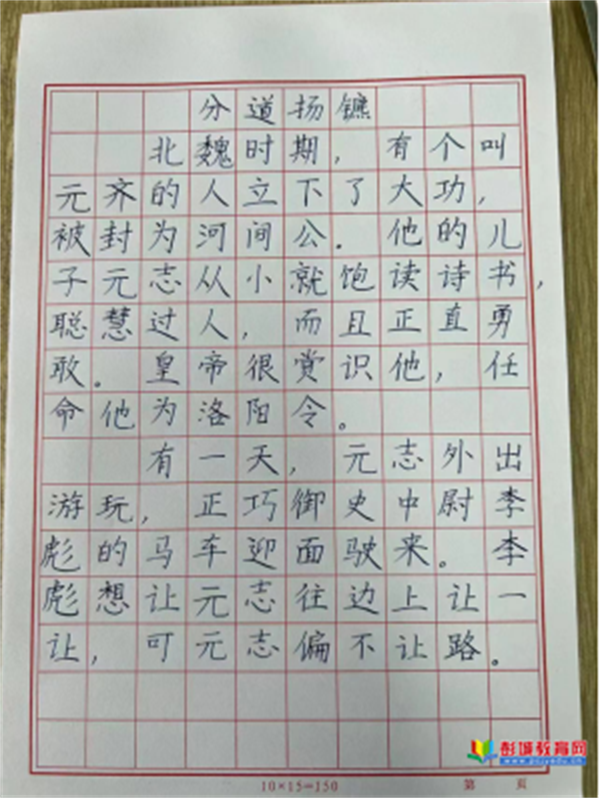 分道扬镳
北魏时期，有个叫
元齐的人立下了大功，
被封为河间公．他的儿
子元志从小就饱读诗书，
聪慧过人，而且正直勇
敢。皇帝很赏识他，任
命他为洛阳令。
有一天，元志外出
游玩，正巧御史中尉李
彪的马车迎面驶来。李
彪想让元志往边上让一
让，可元志偏不让路。
彭城教育网
10×15=150
第 页